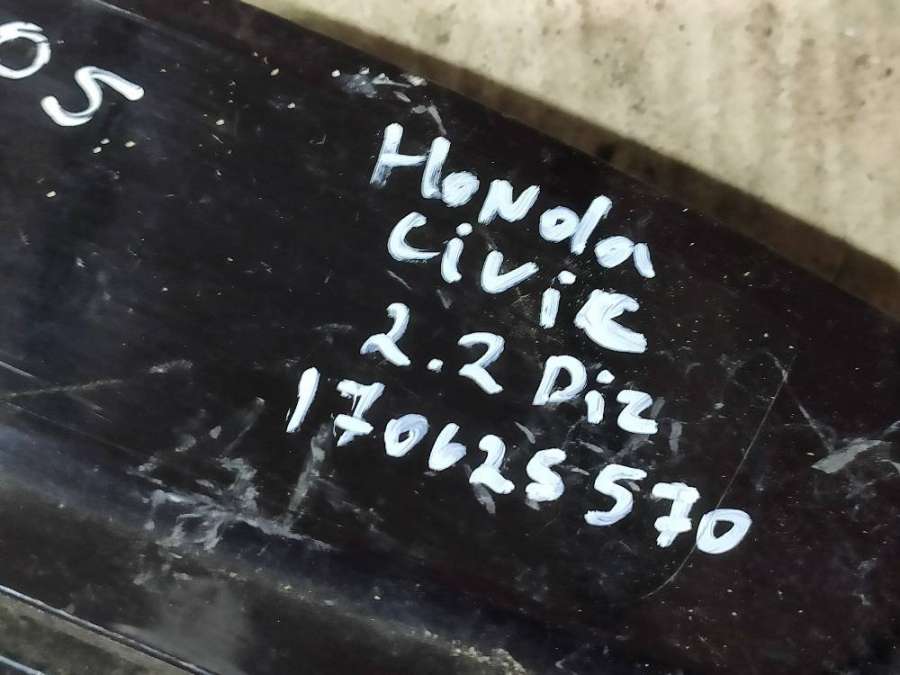 OS
Honda
Civic
2.2 Diz
170625570